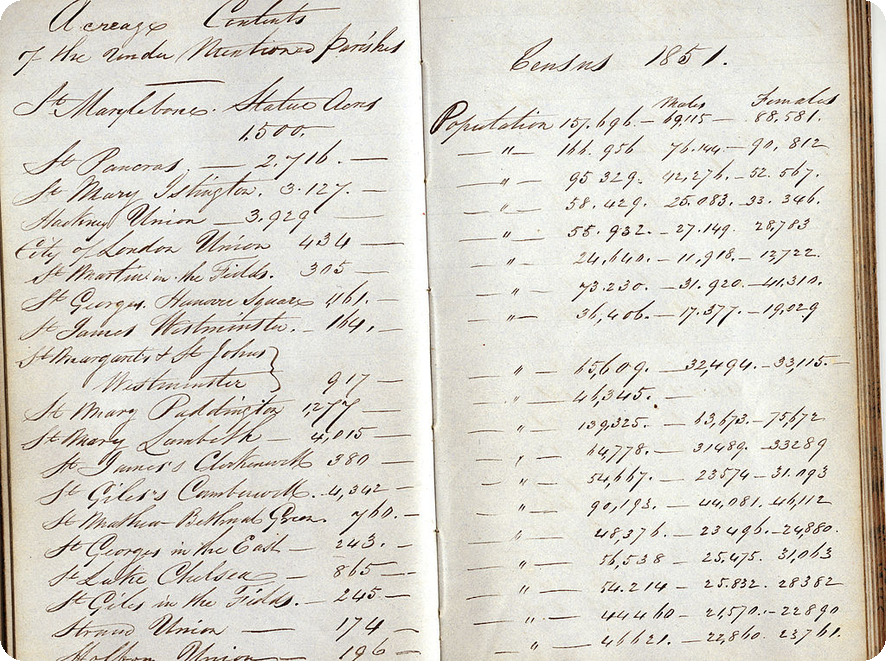 Acreage Contents
of the under Mentioned Parishes
St Marylebone. Statue Acres
1,500.
St Pancras — 2.716. —
St Mary Islington. 3.127. —
Hackney Union — 3.929 —
City of London Union 434 —
St Martin in the Fields. 305 —
St Georges Hanover Square 1161. —
St James Westminster. — 164. —
St Margarets & St Johns
Westminster } 917 —
St Mary Paddington 1277 —
St Mary Lambeth — 4,015 —
St James's Clerkenwell 380 —
St Giles's Camberwell. — 4,342 —
St Mathew Bethnal Green. 760. —
St Georges in the East — 243. —
St Luke Chelsea — 865 —
St Giles in the Fields. — 245 —
Strand Union — 174 —
Holborn Union — 196 —
Census 1851.
Males Females
Population 157.696. — 69,115 — 88,581.
— " — 166.956 76.144. — 90,812
— " — 95 329. 42,276. — 52.567.
— " — 58.429. 25.083. 33.346.
— " — 55.932. — 27.149. 28,783
— " — 24,640. — 11,918. — 12,722.
— " — 73.230. — 31.920. — 41,310.
— " — 36,406. — 17.377. — 19,029
— " — 65,609. — 32494. — 33,115. —
— " — 46,345. —
— " — 139,325. — 63,673. — 75,672
— " — 64,778. — 31489. — 33289
— " — 54,667. — 23574 — 31.093
— " — 90,193. — 44,081. — 46,112
— " — 48,376. — 23496. — 24,880.
— " — 56,538 — 25,475. 31,063
— " — 54.214 — 25.832. 28382
— " — 44460 — 21,570. — 22890
— " — 46621. — 22,860. 23761.